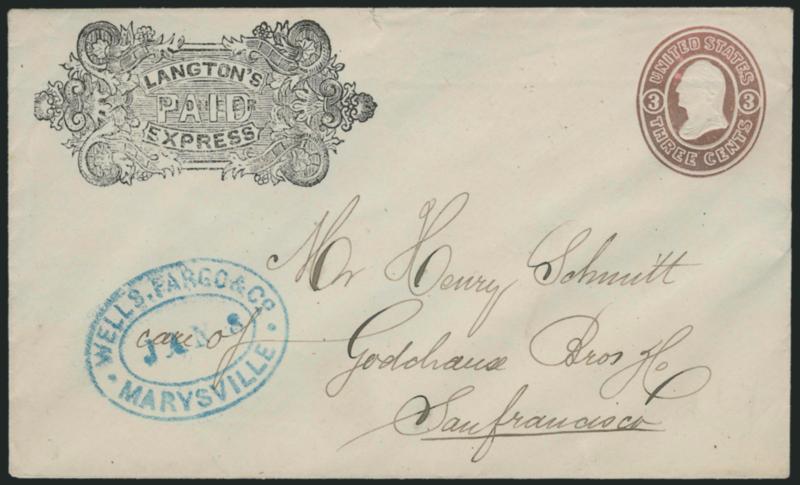 LANGTON'S
PAID
EXPRESS
UNITED STATES
3 3
THREE CENTS
Mr Henry Schmitt
WELLS, FARGO & CO
JAN 8
MARYSVILLE
care of
Godchaux Bros
San francisco